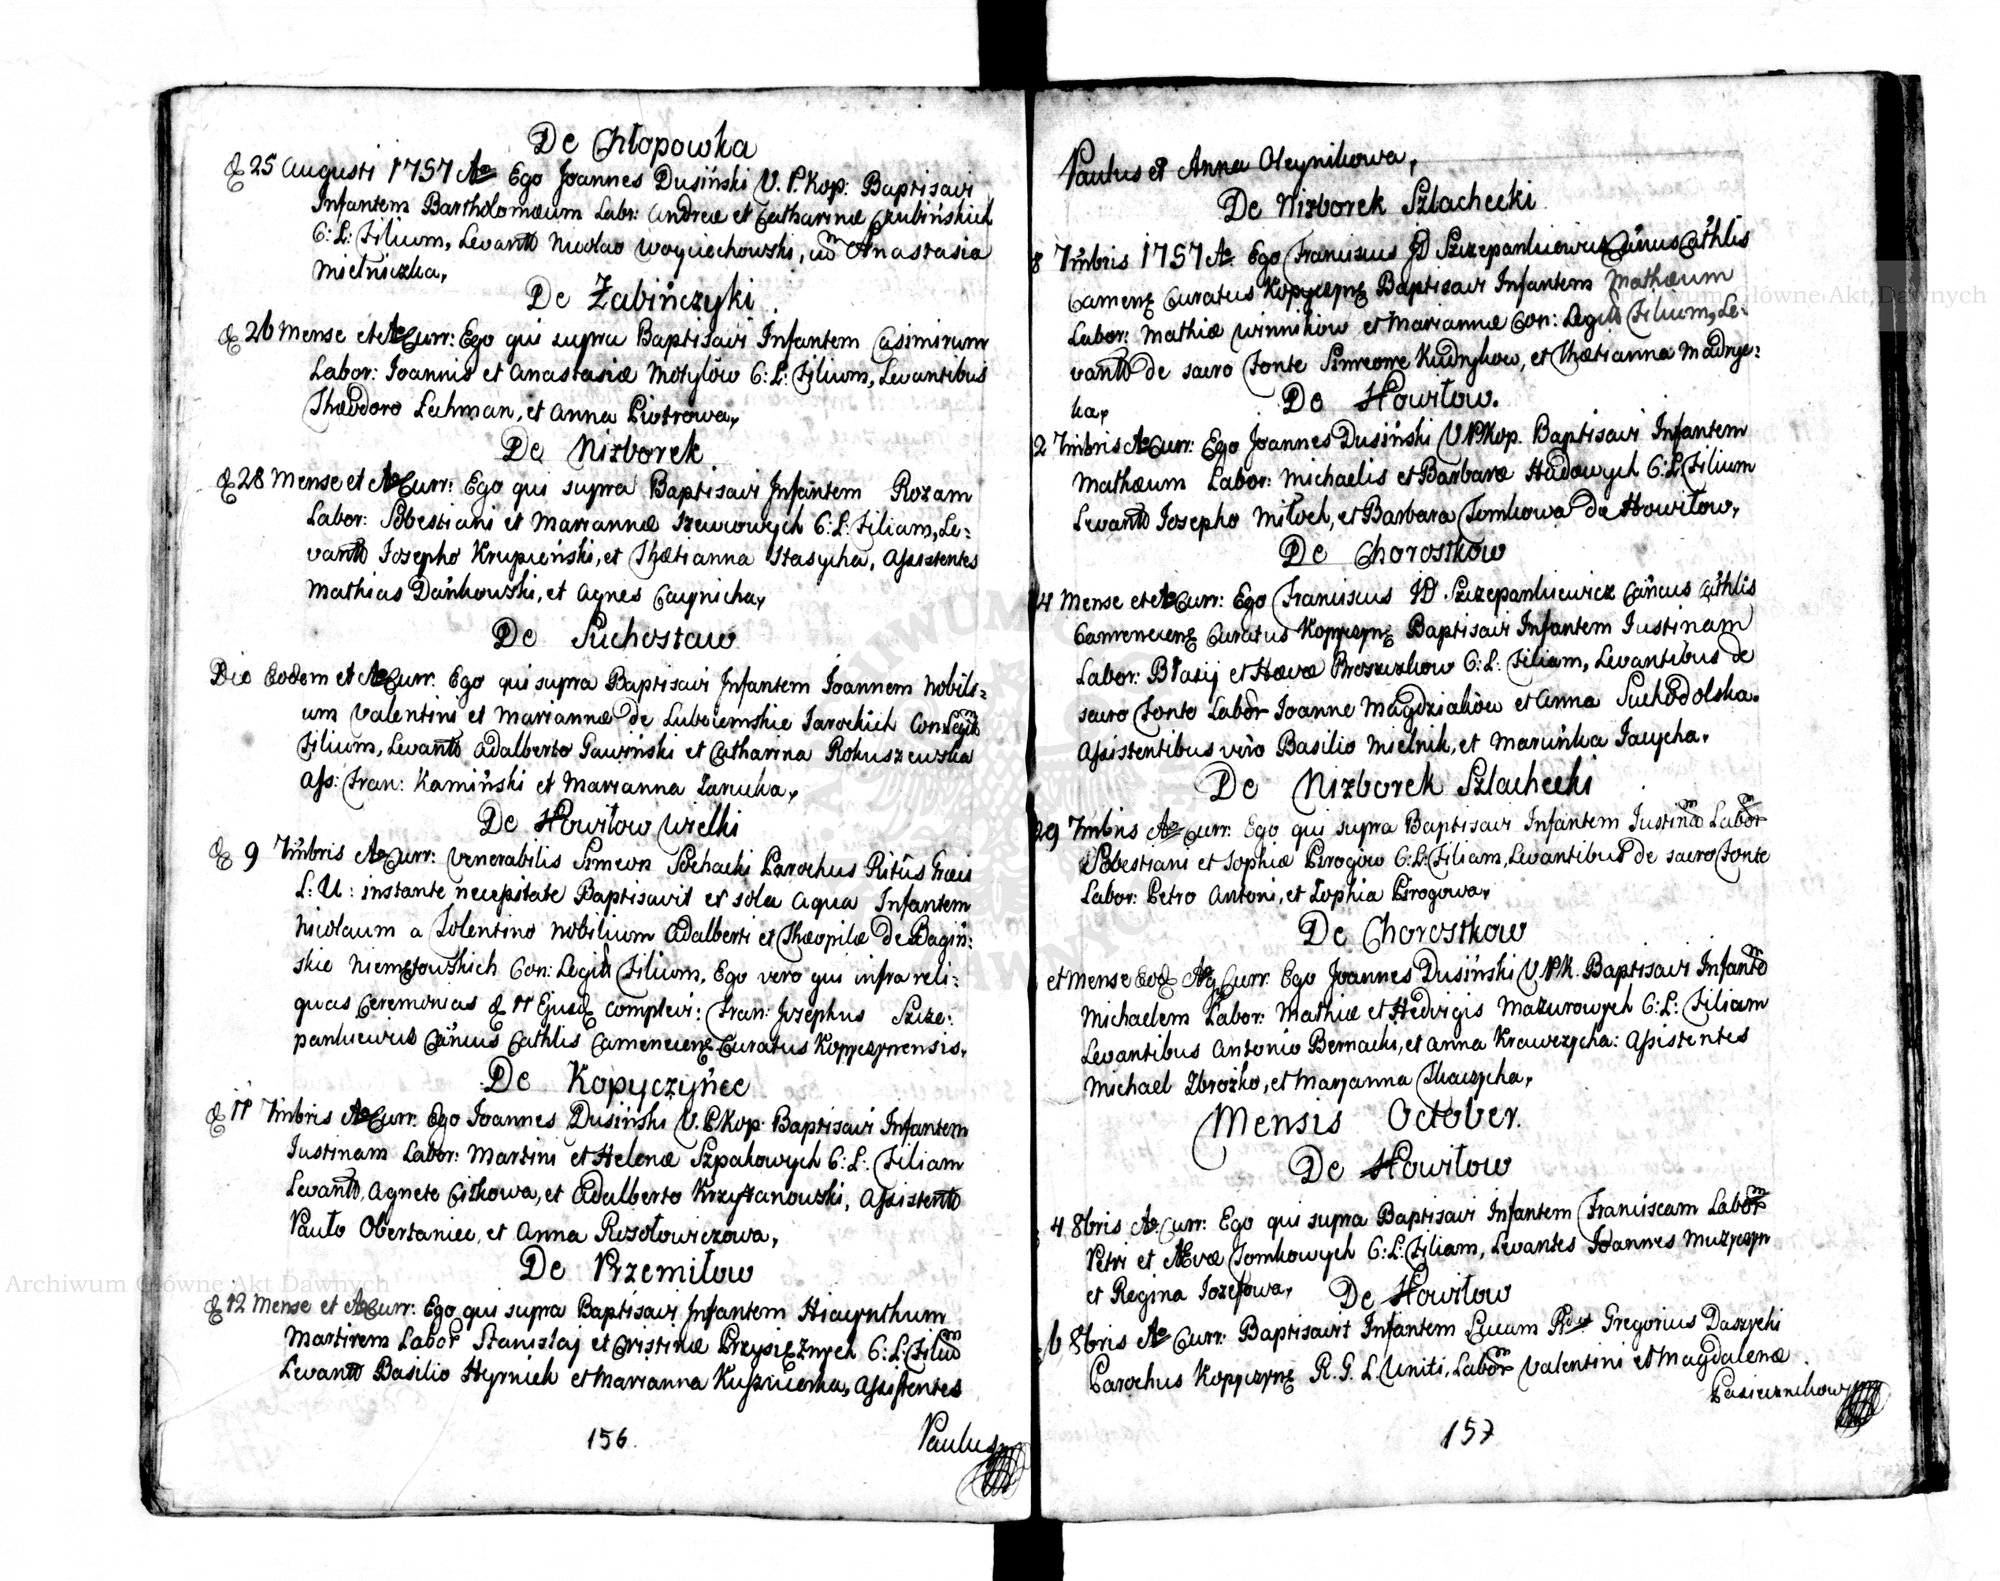 De Chłopowka
d 25 Augusti 1757 Ao Ego Joannes Dusiński V. P. Kop: Baptisavi
Infantem Bartholomæum Labr: Andreæ et Catharinæ Czubińskich
C: L: Filium, Levantb Nicolao Woyciechowski, et Anastasia
Mielniczka,
De Żabińczyki
d 26 Mense et Ao Curr: Ego qui supra Baptisavi Infantem Casimirum
Labor: Joannis et Anastasiæ Motylów C: L: Filium, Levantibus
Theodoro Luhman, et Anna Piotrowa,
De Nizborek
d 28 Mense et Ao Curr: Ego qui supra Baptisavi Infantem Rozam
Labor: Sebestiani et Mariannæ Szewcowych C: L: Filiam, Le:
vantb Josepho Krupieński, et Thætianna Stasycha, Assistentes
Mathias Dańkowski, et Agnes Caynicha,
De Suchostaw
Die Eodem et Ao Curr: Ego qui supra Baptisavi Infantem Joannem Nobili:
um Valentini et Mariannæ de Lubciemskie Jarockich Con: Legit
Filium, Levantb Adalberto Gawiński et Catharina Rokuszewska
Ass: Fran: Kamiński et Marianna Zaricka,
De Howiłow Wielki
d 9 7mbris Ao Curr: Venerabilis Simeon Sochacki Parochus Ritûs Græci
L: U: instante necessitate Baptisavit ex sola aqua Infantem
Nicolaum a Tolentino Nobilium Adalberti et Theopilæ de Bagiń:
skie Niemetowskich Con: Legit Filium, Ego vero qui infra reli:
quas Ceremonias d 11 Ejusd complevi: Fran: Josephus Szcze:
pankiewicz Cancus Cathlis Camenecen Curatus Kopyczynensis,
De Kopyczyńce
d 11 7mbris Ao Curr: Ego Joannes Dusiński V. P. Kop: Baptisavi Infantem
Justinam Labor: Martini et Helenæ Szpakowych C: L: Filiam
Levantb, Agnete Citkowa, et Adalberto Krzyżanowski, Assistentb
Paulo Obertaniec, et Anna Rezołowiczowa,
De Przemiłow
d 12 Mense et Ao Curr: Ego qui supra Baptisavi Infantem Hiacynthum
Martirem Labor Stanislaj et Cristinæ Przysiężnych C: L: Filiu
Levantb Basilio Hyrniek et Marianna Kuszniezka, Assistentes
156.
Paulus
Paulus et Anna Oleynikowa,
De Nizborek Szlachecki
8 7mbris 1757 Ao Ego Franciscus JD Szczepankiewicz Cancus Cathlis
Camen Curatus Kopyczyn Baptisavi Infantem Mathæum
Labor: Mathiæ Winnikow et Mariannæ Con: Legit Filium, Le:
vantb de sacro Fonte Simeone Kudrykow, et Thætianna Madrye:
ka,
De Howiłow.
2 7mbris Ao Curr: Ego Joannes Dusiński V P Kop. Baptisavi Infantem
Mathæum Labor: Michaelis et Barbaræ Hadowych C: L: Filium
Levantb Josepho Miłoch, et Barbara Tomkowa de Howiłow,
De Chorostkow
4 Mense et Ao Curr: Ego Franciscus JD Szczepankiewicz Cancus Cathlis
Camenecien Curatus Kopyczyn Baptisavi Infantem Justinam
Labor: Błasij et Hævæ Proszuzkow C: L: Filiam, Levantibus de
sacro Fonte Labor Joanne Magdziakow et Anna Suchodolska.
Assistentibus vero Basilio Mielnik, et Maruńka Jaycha,
De Nizborek Szlachecki
29 7mbris Ao Curr: Ego qui supra Baptisavi Infantem Justina Labor
Sebestiani et Sophiæ Pirogow C: L: Filiam, Levantibus de sacro Fonte
Labor: Petro Antoni, et Zophia Pirogowa,
De Chorostkow
et Mense Eod Ao Curr: Ego Joannes Dusiński V. P. K. Baptisavi Infant
Michaelem Labor: Mathiæ et Hedvigis Mazurowych C: L: Filium
Levantibus Antonio Bernacki, et Anna Krawczycha: Assistentes
Michael Zbrożko, et Maryanna Tkaczycha,
Mensis October.
De Howiłow
4 8bris Ao Curr: Ego qui supra Baptisavi Infantem Franciscam Labor
Petri et Hævæ Tomkowych C: L: Filiam, Levantes Joannes Muzyczyn
et Regina Jozefowa,
De Howiłow
6 8bris Ao Curr: Baptisavit Infantem Lucam Rdus Gregorius Daszycki
Parochus Kopyczyn R. G. L. Uniti, Labor Valentini et Magdalenæ
Pasiecznikow
157
Archiwum Główne Akt Dawnych
Archiwum Główne Akt Dawnych